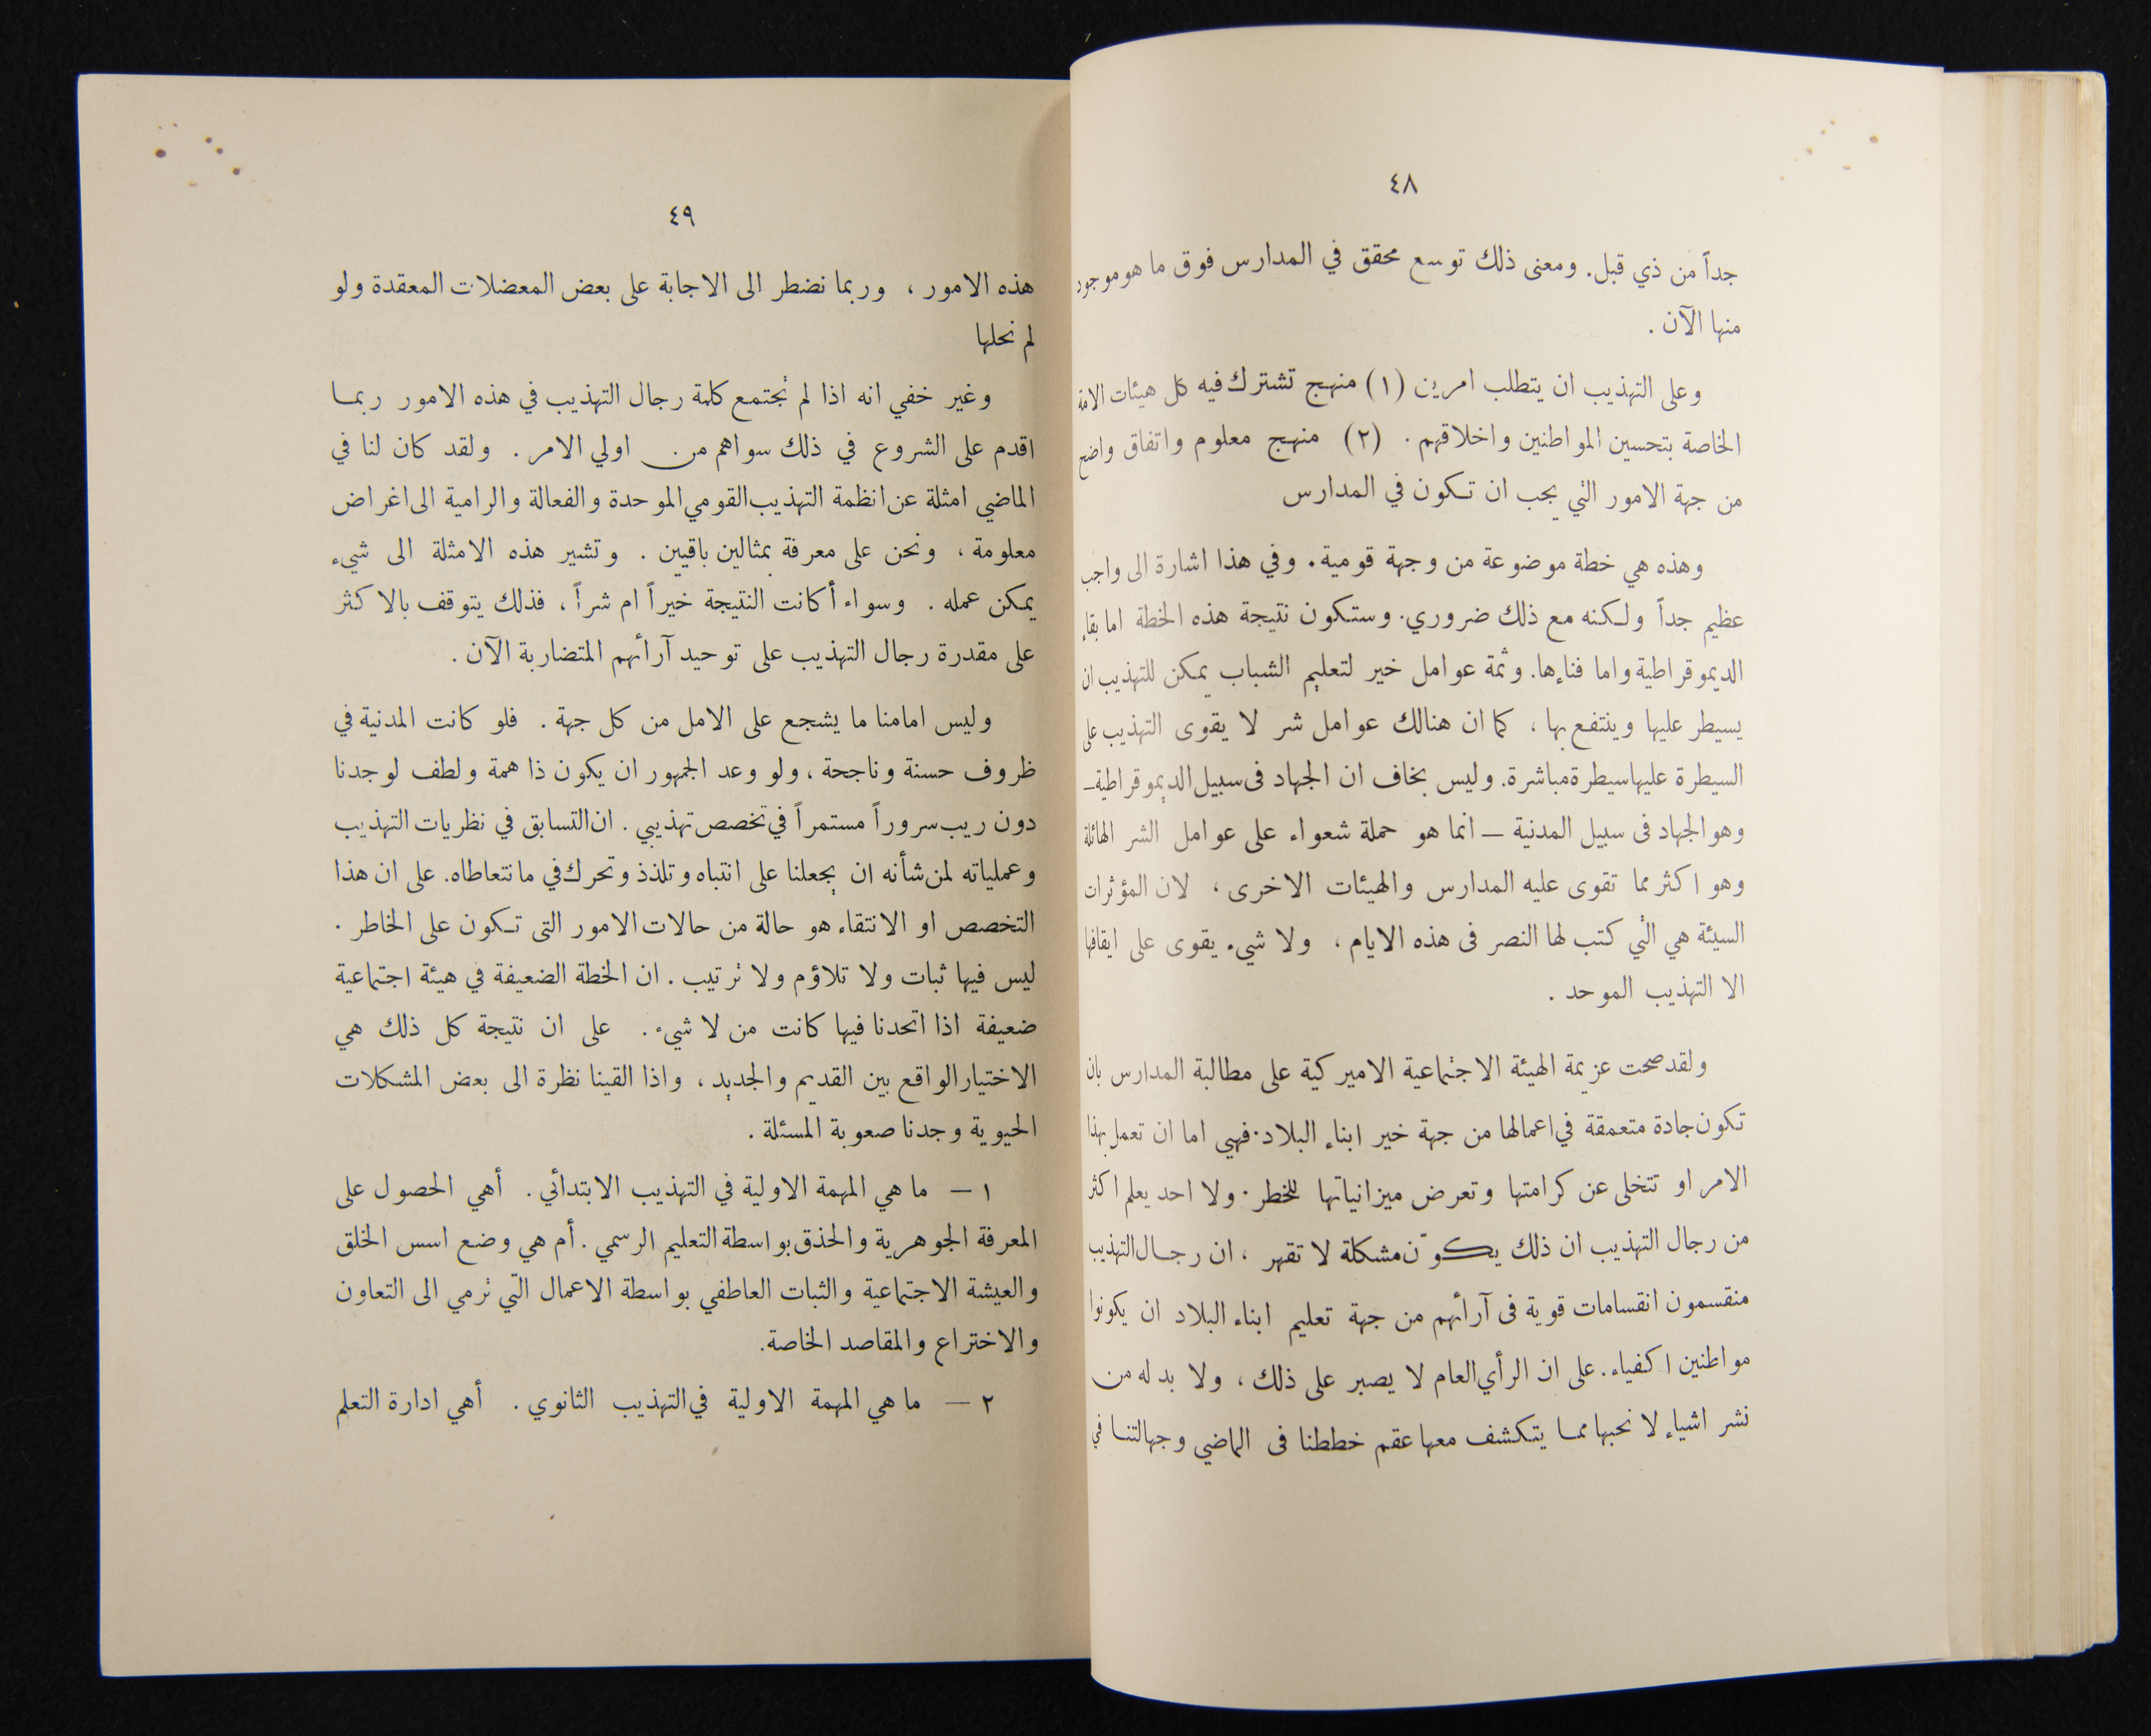 ٤٨
جداً من ذي قبل. ومعنى ذلك توسع محقق في المدارس فوق ما هو موجود
منها الآن .
وعلى التهذيب ان يتطلب امرين (١) منهج تشترك فيه كل هيئات الامة
الخاصة بتحسين المواطنين واخلاقهم . (٢) منهج معلوم واتفاق واضح
من جهة الامور التي يجب ان تكون في المدارس
وهذه هي خطة موضوعة من وجهة قومية. وفي هذا اشارة الى واجب
عظيم جداً ولكنه مع ذلك ضروري. وستكون نتيجة هذه الخطة اما بقاء
الديموقراطية واما فناءها. وثمة عوامل خير لتعليم الشباب يمكن للتهذيب ان
يسيطر عليها وينتفع بها ، كما ان هنالك عوامل شر لا يقوى التهذيب على
السيطرة عليها سيطرة مباشرة. وليس بخاف ان الجهاد فى سبيل الديموقراطية –
وهو الجهاد فى سبيل المدنية – انما هو حملة شعواء على عوامل الشر الهائلة
وهو اكثر مما تقوى عليه المدارس والهيئات الاخرى ، لان المؤثرات
السيئة هي التي كتب لها النصر فى هذه الايام ، ولا شيء يقوى على ايقافها
الا التهذيب الموحد .
ولقد صحت عزيمة الهيئة الاجتماعية الاميركية على مطالبة المدارس بان
تكون جادة متعمقة في اعمالها من جهة خير ابناء البلاد. فهي اما ان تعمل بهذا
الامر او تتخلى عن كرامتها وتعرض ميزانياتها للخطر. ولا احد يعلم اكثر
من رجال التهذيب ان ذلك يكوّن مشكلة لا تقهر ، ان رجال التهذيب
منقسمون انقسامات قوية فى آرائهم من جهة تعليم ابناء البلاد ان يكونوا
مواطنين اكفياء. على ان الرأي العام لا يصبر على ذلك ، ولا بد له من
نشر اشياء لا نحبها مما يتكشف معها عقم خططنا فى الماضي وجهالتنا في
٤٩
هذه الامور ، وربما نضطر الى الاجابة على بعض المعضلات المعقدة ولو
لم نحلها
وغير خفي انه اذا لم تجتمع كلمة رجال التهذيب في هذه الامور ربما
اقدم على الشروع في ذلك سواهم من اولي الامر . ولقد كان لنا في
الماضي امثلة عن انظمة التهذيب القومي الموحدة والفعالة والرامية الى اغراض
معلومة ، ونحن على معرفة بمثالين باقيين . وتشير هذه الامثلة الى شيء
يمكن عمله . وسواء أكانت النتيجة خيراً ام شراً ، فذلك يتوقف بالاكثر
على مقدرة رجال التهذيب على توحيد آرائهم المتضاربة الآن .
وليس امامنا ما يشجع على الامل من كل جهة . فلو كانت المدنية في
ظروف حسنة وناجحة ، ولو وعد الجمهور ان يكون ذا همة ولطف لوجدنا
دون ريب سروراً مستمراً في تخصص تهذيبي . ان التسابق في نظريات التهذيب
وعملياته لمن شأنه ان يجعلنا على انتباه وتلذذ وتحرك في ما نتعاطاه. على ان هذا
التخصص او الانتقاء هو حالة من حالات الامور التى تكون على الخاطر .
ليس فيها ثبات ولا تلاؤم ولا ترتيب . ان الخطة الضعيفة في هيئة اجتماعية
ضعيفة اذا اتحدنا فيها كانت من لا شيء . على ان نتيجة كل ذلك هي
الاختيار الواقع بين القديم والجديد ، واذا القينا نظرة الى بعض المشكلات
الحيوية وجدنا صعوبة المسئلة .
١ – ما هي المهمة الاولية في التهذيب الابتدائي . أهي الحصول على
المعرفة الجوهرية والحذق بواسطة التعليم الرسمي . أم هي وضع اسس الخلق
والعيشة الاجتماعية والثبات العاطفي بواسطة الاعمال التي ترمي الى التعاون
والاختراع والمقاصد الخاصة.
٢ – ما هي المهمة الاولية في التهذيب الثانوي . أهي ادارة التعلم